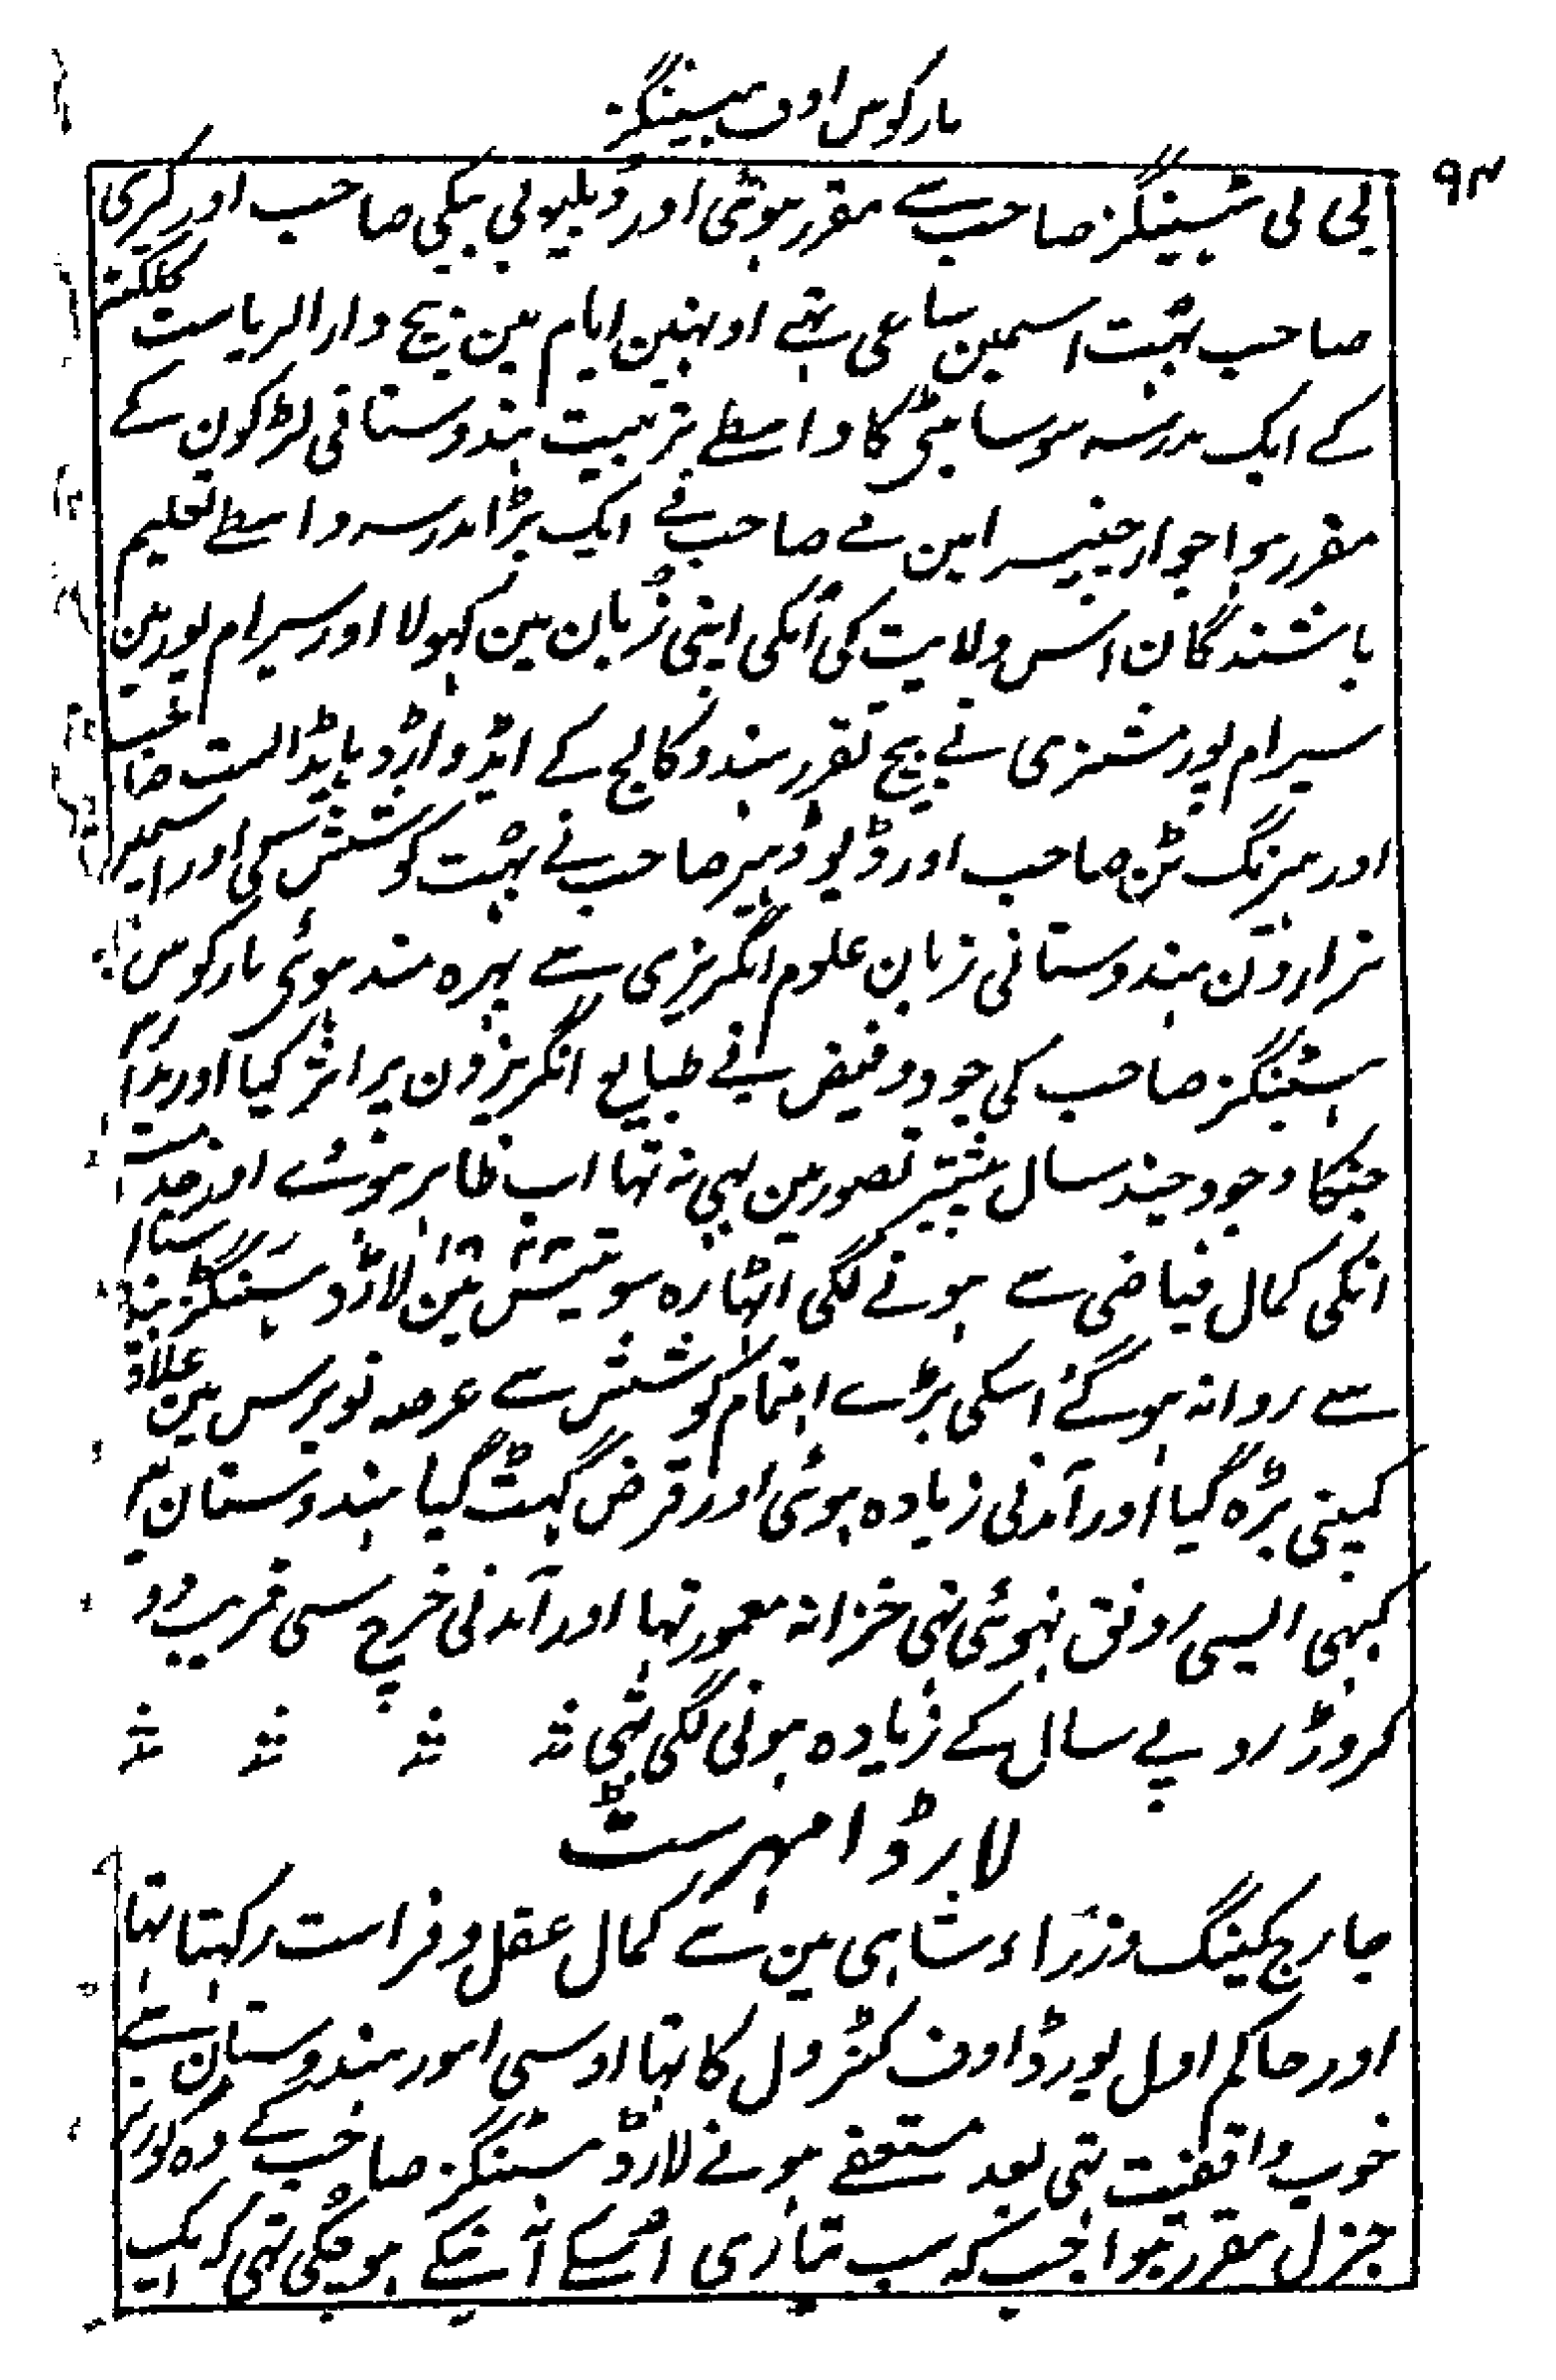 مارکوس اوف ہیسٹینگز
۹۴
بی لی ہسٹینگز صاحب سے مقرر ہوئی اور ڈبلیو بی بیکی صاحب اور کیری
صاحب بہت اسمین ساعی تہے اونہین ایام مین بیچ دار الریاست کلکتہ
کے ایک مدرسہ سوسایٹی کا واسطے تربیت ہندوستانی لڑکون کے
مقرر ہوا جو ارجنیسر امین مے صاحب نے ایک بڑا مدرسہ واسطے تعلیم
باشندگان اس ولایت کی اُنکی اپنی زُبان مین کہولا اور سیرام پور مین
سیرام پور مشنری نے بیچ تقرر ہندو کالج کے ایڈوارڈ ہایڈ الست صاحب
اور ہرنگ ٹن صاحب اور ڈیوڈ ہیر صاحب نے بہت کوشش کی اور اسمین
ہزارون ہندوستانی زبان علوم انگریزی سے بہرہ مند ہوئی مارکوس
ہسٹنگز صاحب کی جود و فیض نے طبایع انگریزون پر اثر کیا اور مدارس
جنکا وجود چند سال پیشتر تصور مین بہی نہ تہا اب ظاہر ہوئے اور خدمت
انکی کمال فیاضی سے ہونے لگی اٹہارہ سو تیئس مین لارڈ ہسٹنگز ہندوستان
سے روانہ ہو گئے اسکی بڑے اہتمام کوشش سے عرصہ نو برس مین علاقہ
کمپنی بڑہ گیا اور آمدنی زیادہ ہوئی اور قرض گہٹ گیا ہندوستان مین
کبہی ایسی رونق نہوئی تہی خزانہ معمور تہا اور آمدنی خرچ سی قریب دو
کروڑ روپے سال کے زیادہ ہونی لگی تہی
لارڈ امہرسٹ
جارج کیننگ وزراء شاہی مین سے کمال عقل و فراست رکہتا تہا
اور حاکم اول بورڈ اوف کنٹرول کا تہا اوسی امور ہندوستان سے
خوب واقفیت تہی بعد مستعفے ہونے لارڈ ہسٹنگز صاحب کے وہ گورنر
جنرل مقرر ہوا جب کہ سب تیاری اُسکے آنیکے ہو چکی تہی کہ ایک